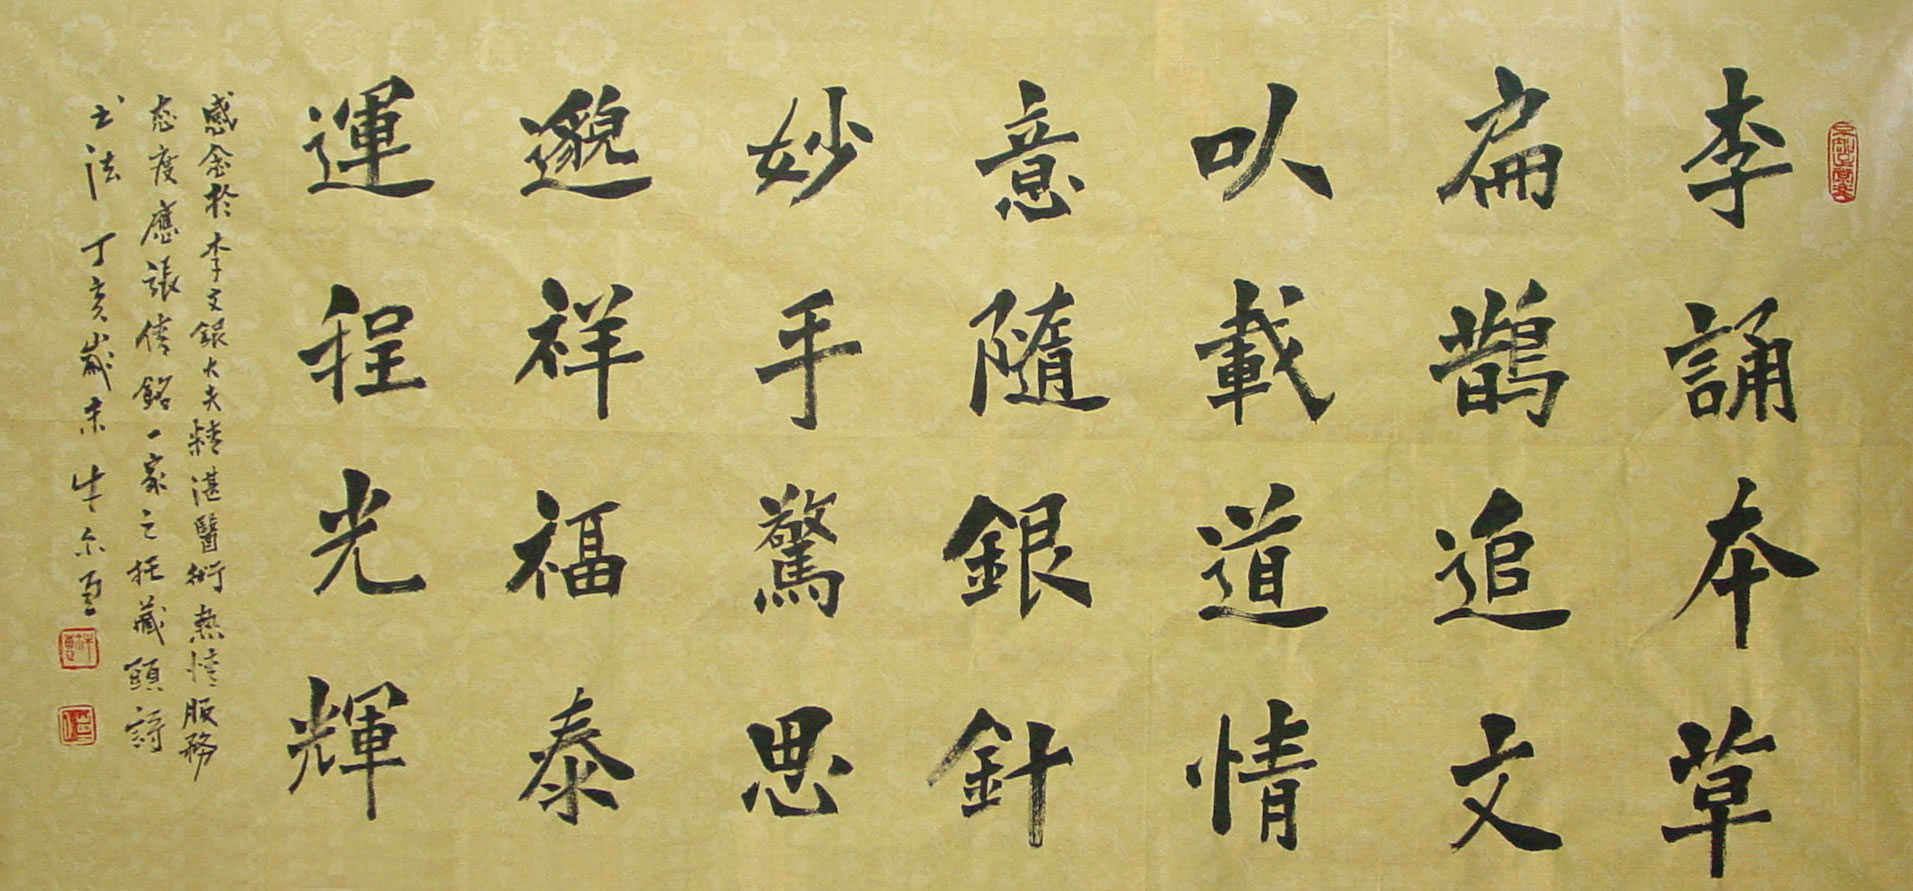 李誦本草
扁鵲追文
以載道情
意隨銀針
妙手驚思
邈祥福泰
運程光輝
感念於李文銀大夫精湛醫術熱情服務
态度應張倩銘一家之托藏頭詩
书法丁亥歲末牛尔